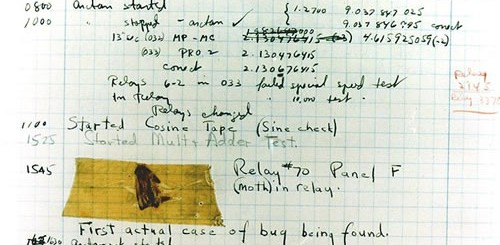 0800 Antan started
1000 " stopped - antan ✓ { 1.2700 9.037 847 025
9.037 846 995 correct
13"uc (032) MP-MC 4.615925059(-2)
(033) PRO 2 2.130476415
correct 2.130676415
Relays 6-2 in 033 failed special speed test
in relay " 10,000 test.
Relay
Relays changed
1100 Started Cosine Tape (Sine check)
1525 Started Mult + Adder Test.
1545 Relay #70 Panel F
(moth) in relay.
First actual case of bug being found.